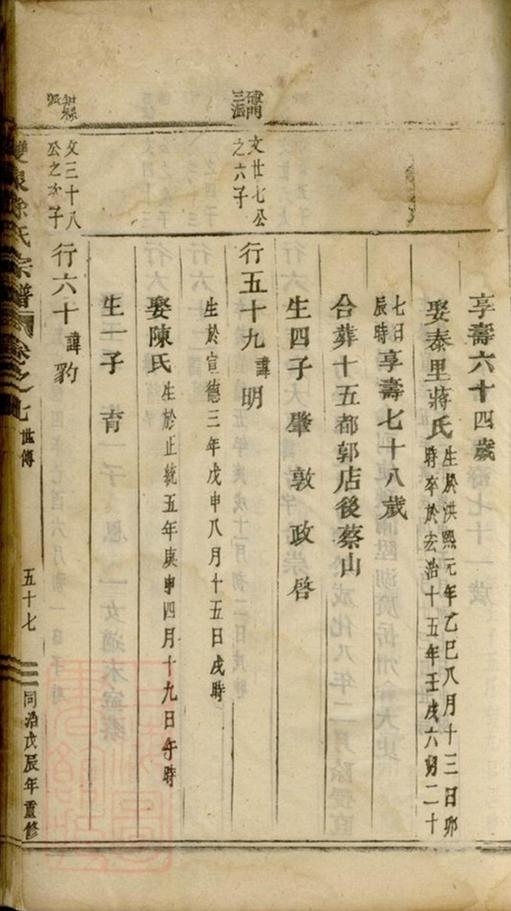 享壽六十四歲
娶泰里蔣氏生於洪熙元年乙巳八月十三日卯
時卒於宏治十五年壬戌六月二十
七日
辰時享壽七十八歲
合葬十五都郭店後蔡山
生四子肇敦政啓
文廿七公
之六子
行五十九諱明
生於宣德三年戊申八月十五日戌時
娶陳氏生於正統五年庚申四月十九日午時
生一子育
文三十八
公之次子
行六十諱豹
雙泉徐氏宗譜
卷之七
世傳
五十七
同治戊辰年重修